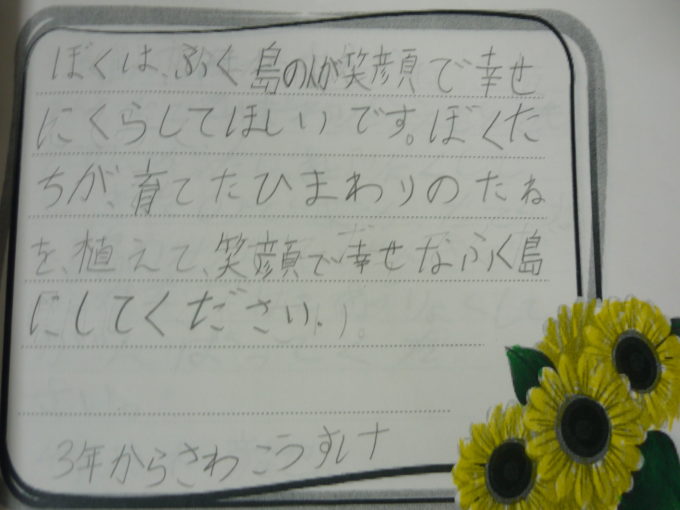 ぼくは、ふく島の人が笑顔で幸せ
にくらしてほしいです。ぼくた
ちが、育てたひまわりのたね
を、植えて、笑顔で幸せなふく島
にしてください。
3年からさわ